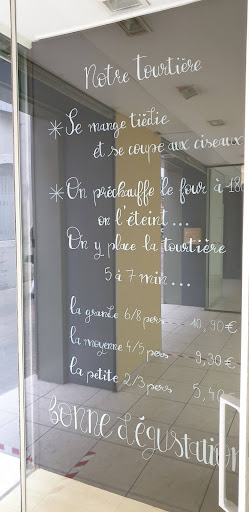 Notre tourtière
* Se mange tiëdie
et se coupe aux ciseaux
* On préchauffe le four à 180
on l'éteint...
On y place la tourtière
5 à 7 min...
la grande 6/8 pers 10,90€
la moyenne 4/5 pers 9,30€
la petite 2/3 pers 5,40
Bonne dégustation